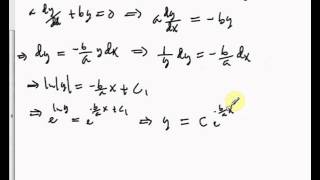 a dy/dx + by = 0 ⇒ a dy/dx = -by
⇒ dy = -b/a y dx ⇒ 1/y dy = -b/a dx
⇒ ln|y| = -b/a x + C₁
⇒ e^(ln y) = e^(-b/a x + C₁) ⇒ y = C e^(-b/a x)